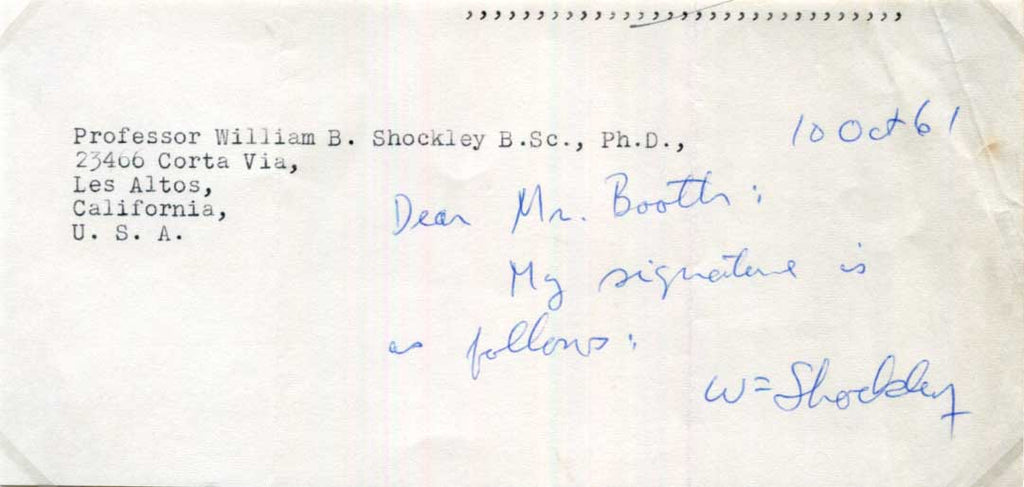 ,,,,,,,,,,,,,,,,,,,,,,,,,,,,,,,
Professor William B. Shockley B.Sc., Ph.D.,
23466 Corta Via,
Les Altos,
California,
U. S. A.
10 Oct 61
Dear Mr. Booth:
My signature is
as follows:
W= Shockley